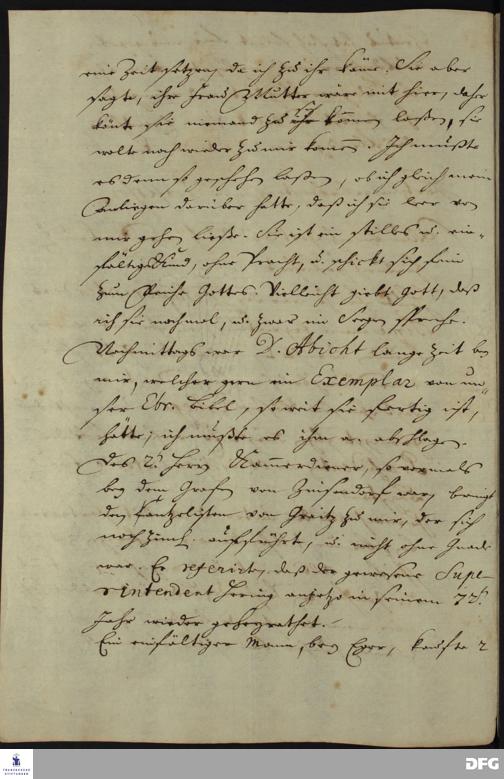 eine Zeit setzen, da ich zu ihr käme. Sie aber
sagte, ihre Frau Mutter wäre mit hier, daher
könte sie niemand zu sich kommen laßen, sie
wolte noch wieder zu mir komen. Ich mußte
es denn so geschehen laßen, ob ich gleich mein
Anliegen darüber hatte, daß ich sie leer von
mir gehen ließe. Sie ist ein stilles u. ein-
fältiges Kind, ohne Pracht, u. schickt sich fein
zum Reiche Gottes. Vielleicht giebt Gott, daß
ich sie nochmal, u. zwar im Segen spreche.
Nachmittags war D. Abicht lange Zeit bey
mir, welcher gern ein Exemplar von un-
ser Ebr. Bibel, so weit sie fertig ist,
hätte; ich mußte es ihm abschlagen.
Des Herrn Kammerdiener, so vormals
bey dem Grafen von Zinsendorf war, bringt
den Cantzelisten von Greitz zu mir, der sich
noch aufführte, u. nicht ohne Gnade
war. Er referirte, daß der gewesene Supe-
rintendent Hering anjetzo in seinem
Jahr wieder geheyrathet.
Ein einfältiger Mann, bey Eger, kaufte 2
FRANCKESCHE
STIFTUNGEN
DFG